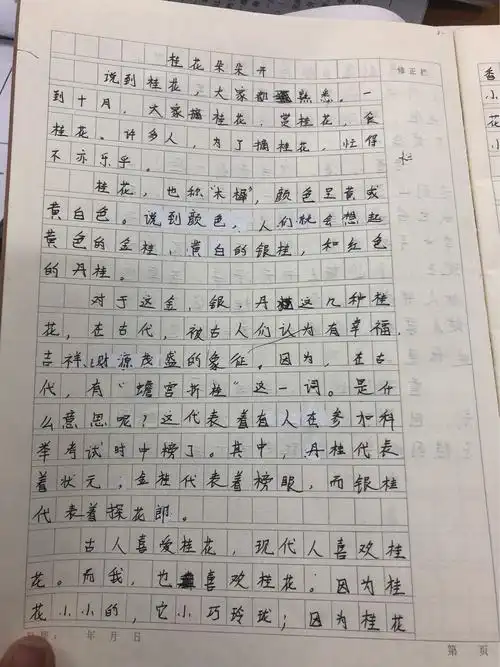 桂花朵朵开
修正栏
说到桂花,大家都熟悉。一
到十月,大家摘桂花,赏桂花,食
桂花。许多人,为了摘桂花,忙得
不亦乐乎。
桂花,也称"木樨",颜色呈黄或
黄白色。说到颜色,人们就会想起
黄色的金桂,黄白的银桂,和红色
的丹桂。
对于这金,银,丹这几种桂
花,在古代,被古人们认为有幸福,
吉祥,财源茂盛的象征。因为,在古
代,有"蟾宫折桂"这一词。是什
么意思呢?这代表着有人在参加科
举考试时中榜了。其中,丹桂代表
着状元,金桂代表着榜眼,而银桂
代表着探花郎。
古人喜爱桂花,现代人喜欢桂
花。而我,也喜欢桂花。因为桂
花小小的,它小巧玲珑;因为桂花
年 月 日
第 页
香
小
花